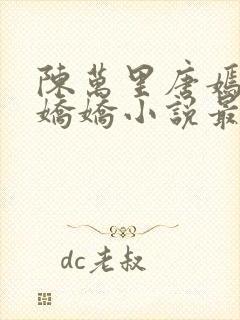 陳萬里唐嫣
嬌嬌小說最
dc老叔